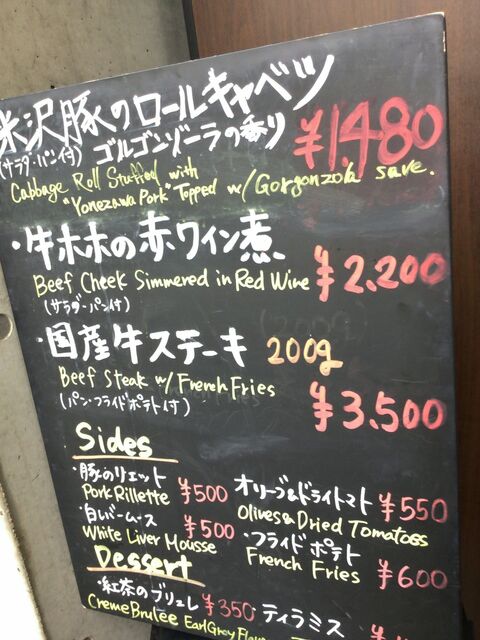 米沢豚のロールキャベツ
(サラダ・パン付) ゴルゴンゾーラの香り ¥1,480
Cabbage Roll Stuffed with
"Yonezawa Pork" Topped w/ Gorgonzola save.
・牛ホホの赤ワイン煮
Beef Cheek Simmered in Red Wine ¥2,200
(サラダ・パン付)
・国産牛ステーキ 200g
Beef Steak w/ French Fries
(パン・フライドポテト付) ¥3,500
Sides
・豚のリエット ¥500
Pork Rillette
・白レバームース ¥500
White Liver Mousse
オリーブ&ドライトマト ¥550
Olives & Dried Tomatoes
・フライドポテト
French Fries ¥600
Dessert
・紅茶のブリュレ ¥350
Creme Brulee Earl Grey
・ティラミス